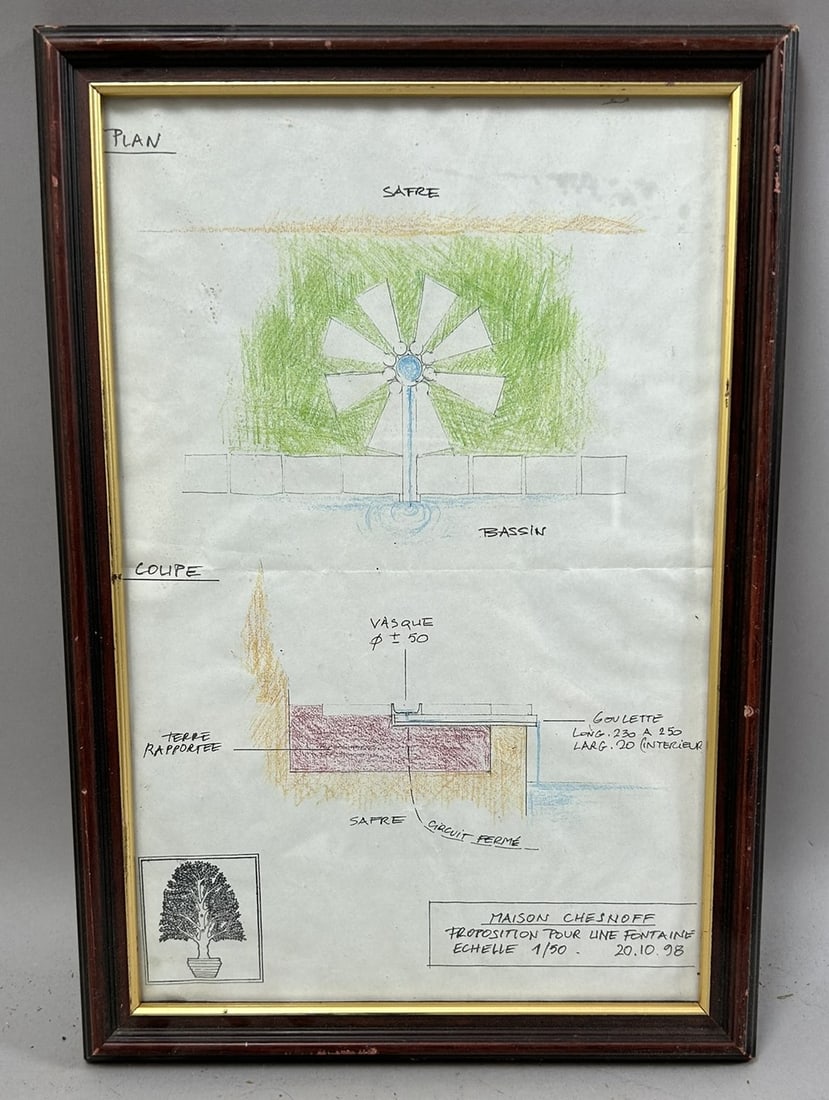 PLAN
SAFRE
BASSIN
COUPE
VASQUE
φ ± 50
GOULETTE
LONG. 230 A 250
LARG. 20 (INTERIEUR
TERRE
RAPPORTEE
SAFRE
CIRCUIT FERMÉ
MAISON CHESNOFF
PROPOSITION POUR UNE FONTAINE
ECHELLE 1/50. 20.10.98